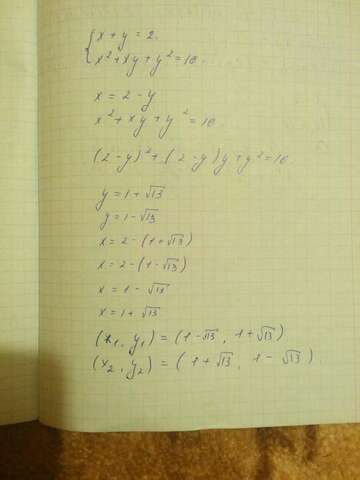 { x + y = 2.
x² + xy + y² = 16.
x = 2 - y
x² + xy + y² = 16
(2 - y)² + (2 - y)y + y² = 16
y = 1 + √13
y = 1 - √13
x = 2 - (1 + √13)
x = 2 - (1 - √13)
x = 1 - √13
x = 1 + √13
(x₁, y₁) = (1 - √13, 1 + √13)
(x₂, y₂) = (1 + √13, 1 - √13)